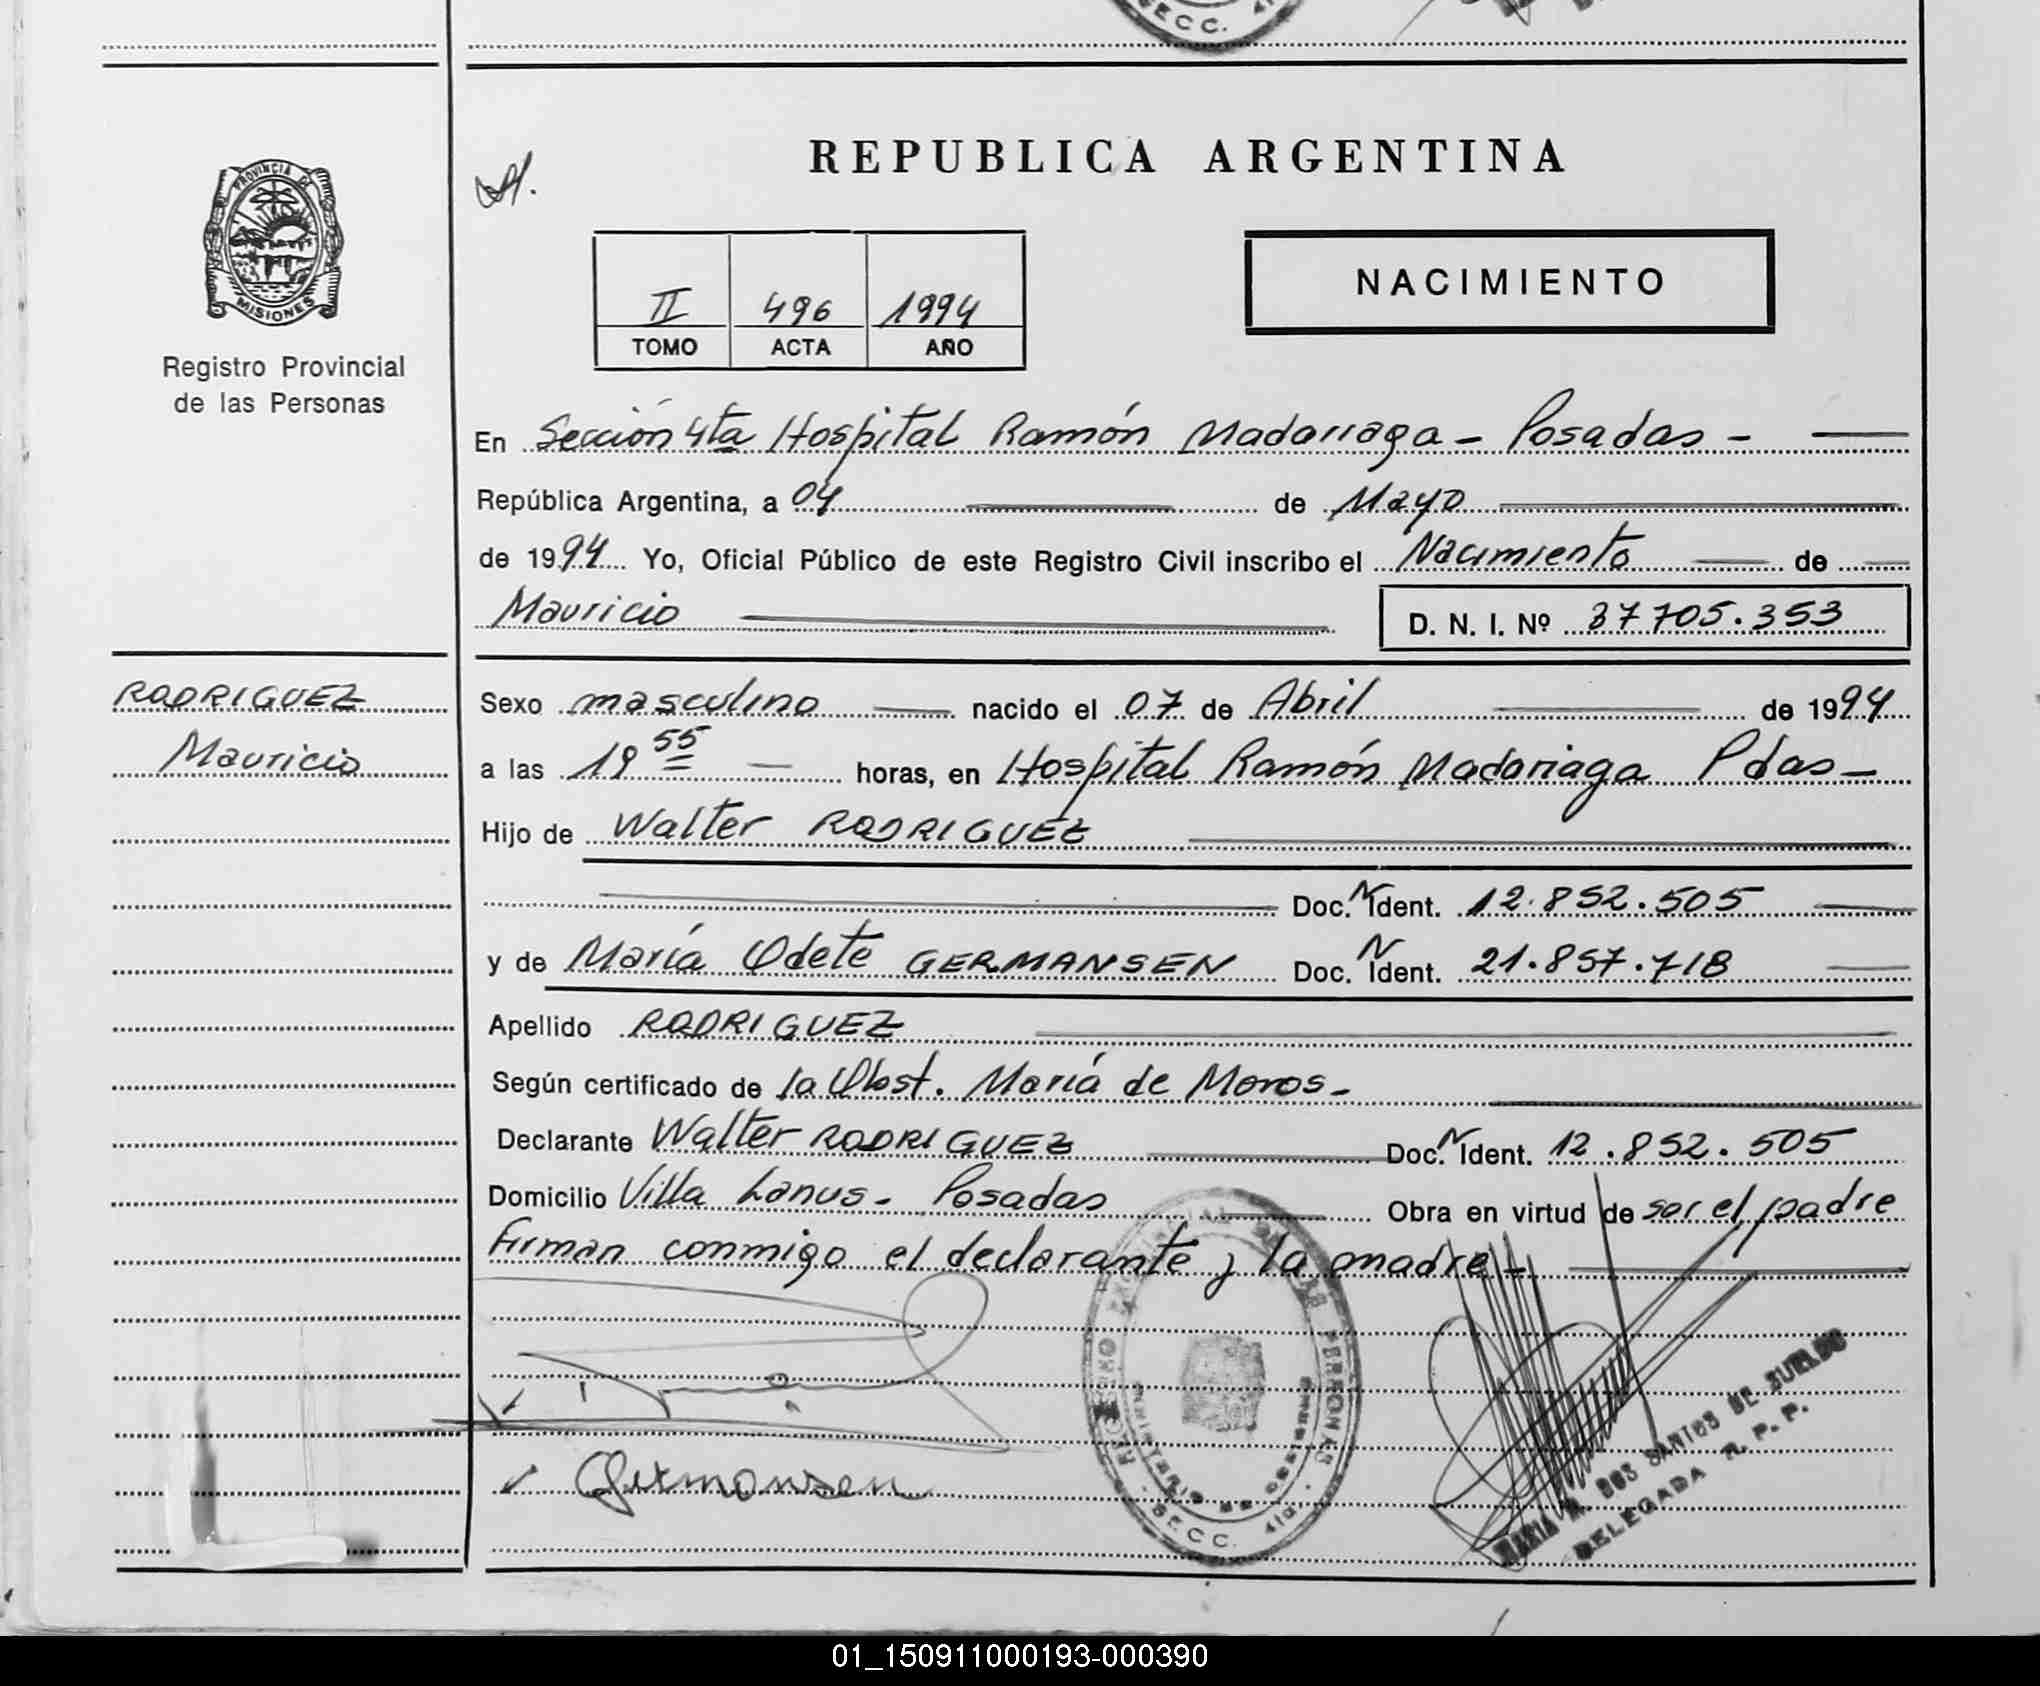 SECC. 4ta
REPUBLICA ARGENTINA
PROVINCIA DE
MISIONES
Registro Provincial
de las Personas
II 496 1994
TOMO ACTA AÑO
NACIMIENTO
En Sección 4ta Hospital Ramón Madariaga - Posadas -
República Argentina, a 04 de Mayo
de 1994 Yo, Oficial Público de este Registro Civil inscribo el Nacimiento de
Mauricio D. N. I. Nº 37705.353
RODRIGUEZ
Mauricio
Sexo masculino nacido el 07 de Abril de 1994
a las 19 55 horas, en Hospital Ramón Madariaga Pdas -
Hijo de Walter RODRIGUEZ
Doc. N Ident. 12.852.505
y de María Odete GERMANSEN Doc. N Ident. 21.857.718
Apellido RODRIGUEZ
Según certificado de la Obst. María de Moros -
Declarante Walter RODRIGUEZ Doc. N Ident. 12.852.505
Domicilio Villa Lanus - Posadas Obra en virtud de ser el padre
Firman conmigo el declarante y la madre -
Germansen
REGISTRO PROVINCIAL DE LAS PERSONAS
MINISTERIO DE GOBIERNO
SECC. 4ta
MARIA DOS SANTOS DE SUELDO
DELEGADA R. P. P.
01_150911000193-000390